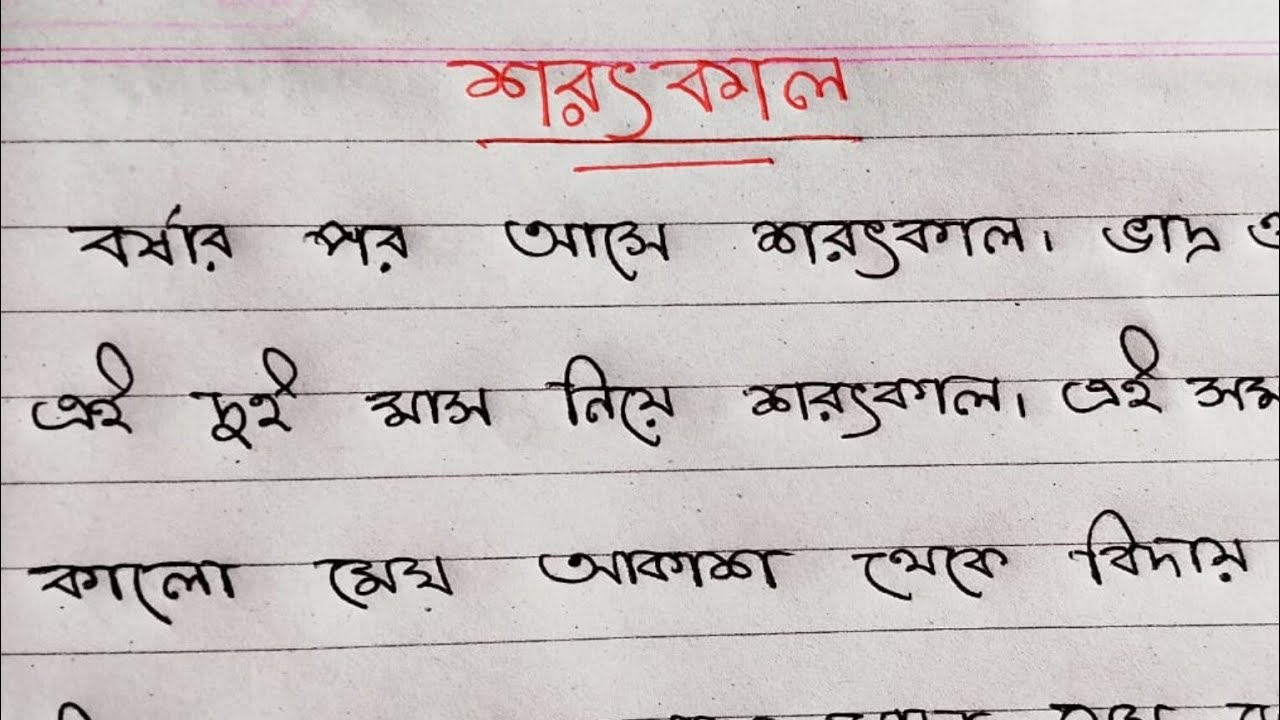 শরৎকাল
বর্ষার পর আসে শরৎকাল। ভাদ্র
এই দুই মাস নিয়ে শরৎকাল। এই সম
কালো মেঘ আকাশ থেকে বিদায়